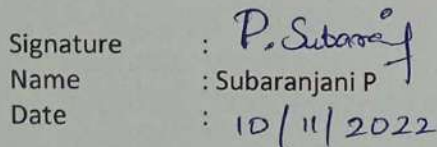 Signature : P. Subaranj
Name : Subaranjani P
Date : 10/11/2022